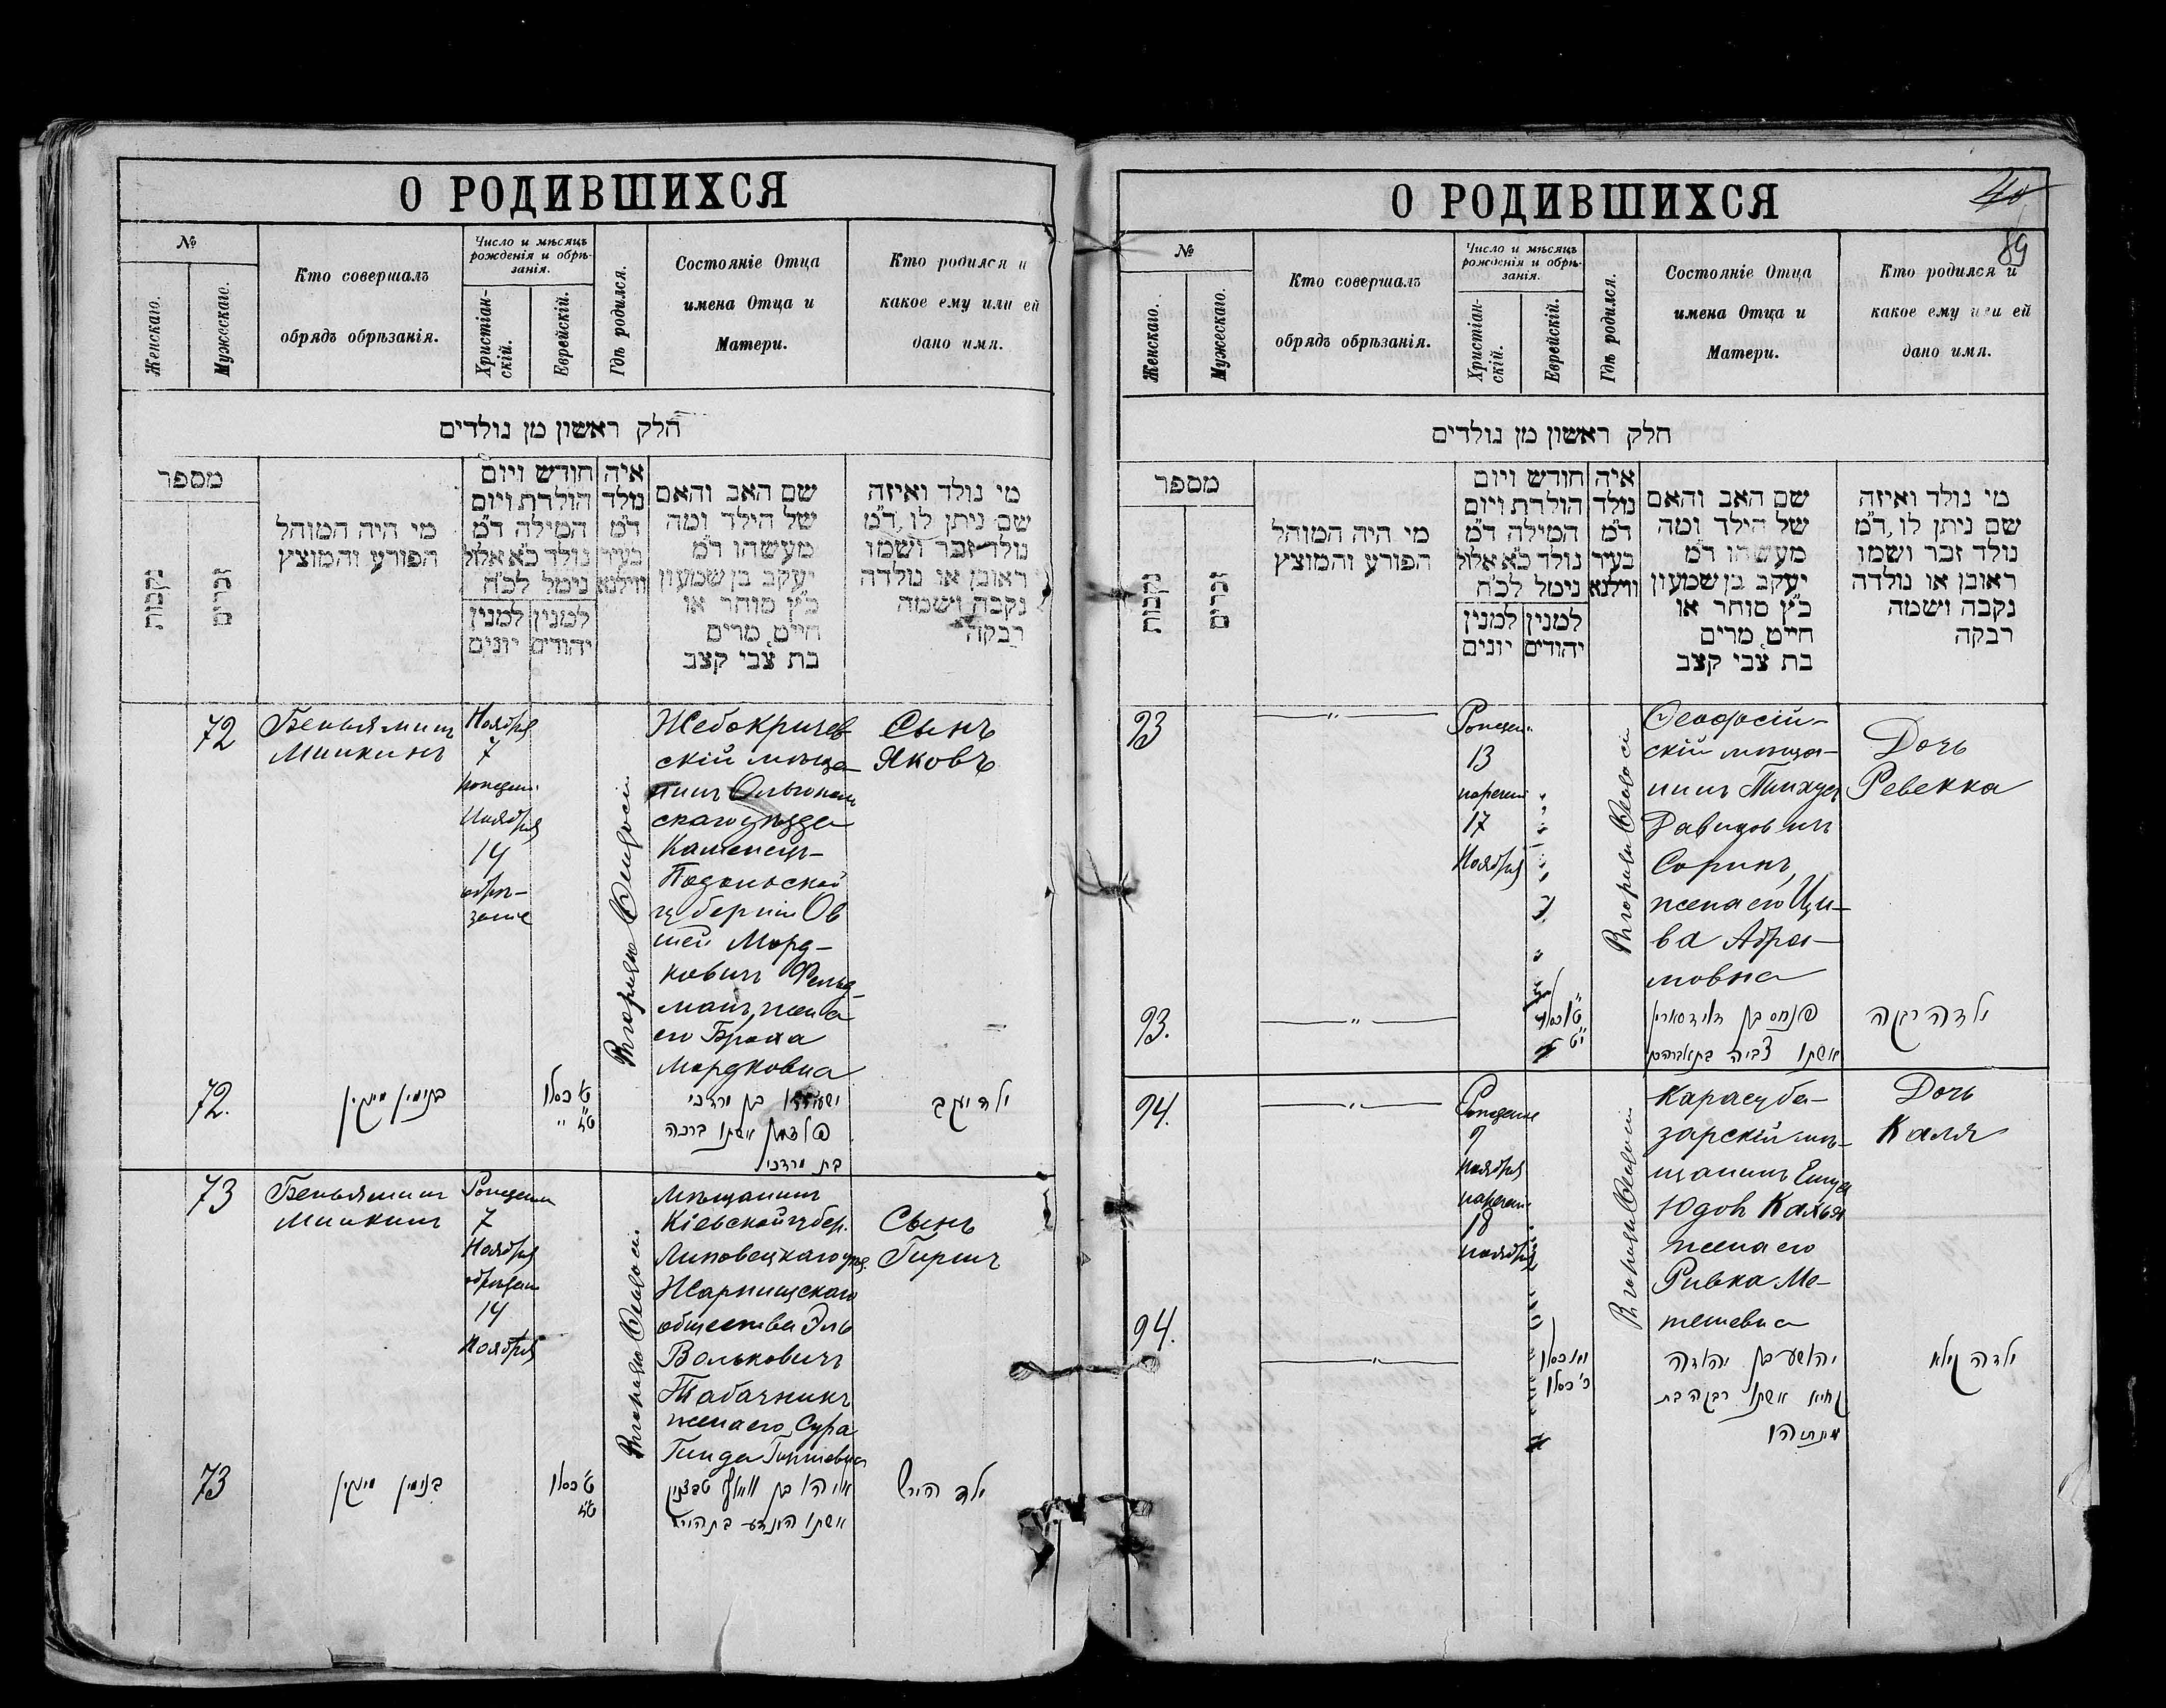 О РОДИВШИХСЯ
№
Женскаго.
Мужескаго.
Кто совершалъ
обрядъ обрѣзанія.
Число и мѣсяцъ
рожденія и обрѣ-
занія.
Христіан-
скій.
Еврейскій.
Гдѣ родился.
Состояніе Отца
имена Отца и
Матери.
Кто родился и
какое ему или ей
дано имя.
חלק ראשון מן נולדים
מספר
נקבות
זכרים
מי היה המוהל
הפורע והמוצץ
חודש ויום
הולדת ויום
המילה ד״מ
נולד כ״א אלול
נימל לכ״ח
למנין
יהודים
למנין
יונים
איה
נולד
ד״מ
בעיר
ווילנא
שם האב והאם
של הילד ומה
מעשהו ד״מ
יעקב בן שמעון
כ״ץ סוחר או
חייט מרים
בת צבי קצב
מי נולד ואיזה
שם ניתן לו ד״מ
נולד זכר ושמו
ראובן או נולדה
נקבה ושמה
רבקה
72
Беньяминъ
Минкинъ
Ноября
7
Ноября
14
обрѣ-
заніе
Жебокричев
скій мѣща-
нинъ Ольгополь
скаго уѣзда
Каменецъ-
Подольской
губерніи Ов
шей Морд-
ковичъ Фельд-
манъ, жена
его Броха
Мордковна
Сынъ
Яковъ
72.
בנימין מינקין
ט׳ כסלו
ט״ז "
בן מרדכי
פלדמן אשתו ברכה
בת מרדכי
ילד יעקב
73
Беньяминъ
Минкинъ
7
Ноября
14
Ноября
Мѣщанинъ
Кіевской губер.
Липовецкаго уѣз.
Жорнищскаго
общества Эль
Вольковичъ
Табачникъ
жена его Сура
Гинда Гиршевна
Сынъ
Гиршъ
73
בנימין מינקין
ט׳ כסלו
ט״ז
אליהו בן וואלף
ילד הירש
О РОДИВШИХСЯ
40
89
№
Женскаго.
Мужескаго.
Кто совершалъ
обрядъ обрѣзанія.
Число и мѣсяцъ
рожденія и обрѣ-
занія.
Христіан-
скій.
Еврейскій.
Гдѣ родился.
Состояніе Отца
имена Отца и
Матери.
Кто родился и
какое ему или ей
дано имя.
חלק ראשון מן נולדים
מספר
נקבות
זכרים
מי היה המוהל
הפורע והמוצץ
חודש ויום
הולדת ויום
המילה ד״מ
נולד כ״א אלול
נימל לכ״ח
למנין
יהודים
למנין
יונים
איה
נולד
ד״מ
בעיר
ווילנא
שם האב והאם
של הילד ומה
מעשהו ד״מ
יעקב בן שמעון
כ״ץ סוחר או
חייט מרים
בת צבי קצב
מי נולד ואיזה
שם ניתן לו ד״מ
נולד זכר ושמו
ראובן או נולדה
נקבה ושמה
רבקה
93
13
17
Ноября
Ѳеодосій-
скій мѣща-
нинъ Пинхусъ
Давидовичъ
Соринъ,
жена его Ци-
ва Абра-
мовна
Дочь
Ревекка
93.
פנחס בן דוד סארין
אשתו צביה בת אברהם
ילדה רבקה
94.
9
Ноября
18
ноября
Карасуба-
зарскій мѣ-
щанинъ Ешуа
Юдовъ
жена его
Ривка Ме-
тешевна
Дочь
Каля
94.
כ׳ כסלו
יהושע בן יהודה
אשתו רבקה בת
מתתיהו
ילדה קילא